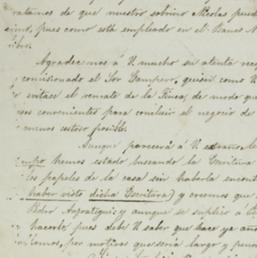 tratamos de que nuestro sobrino Nicolas pued
cio, pues como está empleado en el Banco N
libre.
Agradecemos á U. mucho su atenta rec
y comisionado el Sor Gampero, quién como U
evitase el remate de la Finca, de modo que
ios convenientes para concluir el negocio de
menos costoso posible.
Aunque parecerá á U. estraño le
hemos estado buscando la Escritura
los papeles de la casa sin haberla encont
haber visto dicha Escritura) y creemos que
Aspiatigui; y aunque se suplico a
hacerlo, pues debe U. saber que hace ya año
por motivos que sería largo y pen